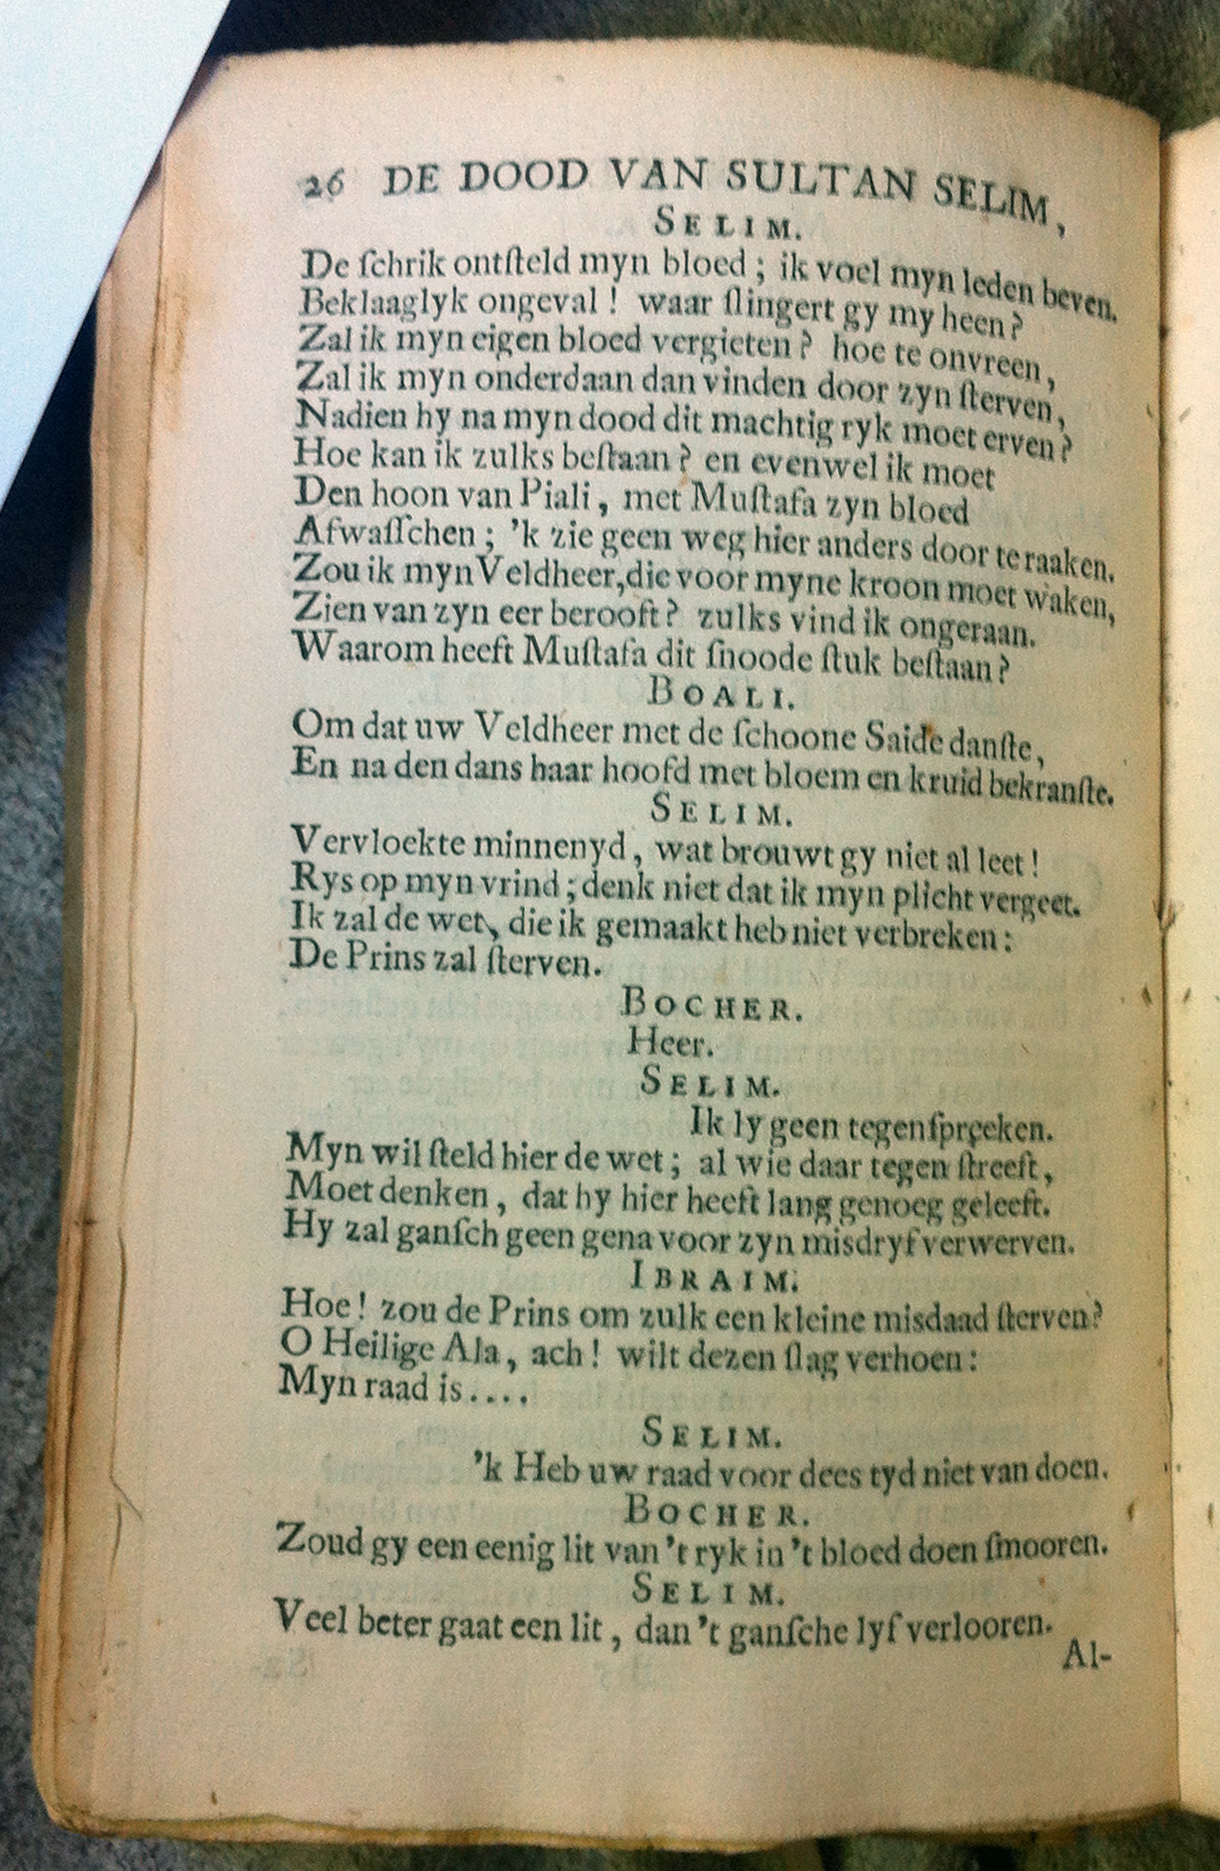 26 DE DOOD VAN SULTAN SELIM,
SELIM.
De ſchrik ontſteld myn bloed ; ik voel myn leden beven.
Beklaaglyk ongeval ! waar ſlingert gy my heen ?
Zal ik myn eigen bloed vergieten ? hoe te onvreen,
Zal ik myn onderdaan dan vinden door zyn ſterven,
Nadien hy na myn dood dit machtig ryk moet erven ?
Hoe kan ik zulks beſtaan ? en evenwel ik moet
Den hoon van Piali, met Muſtafa zyn bloed
Afwaſſchen ; 'k zie geen weg hier anders door te raaken.
Zou ik myn Veldheer, die voor myne kroon moet waken,
Zien van zyn eer berooft ? zulks vind ik ongeraan.
Waarom heeft Muſtafa dit ſnoode ſtuk beſtaan ?
BOALI.
Om dat uw Veldheer met de ſchoone Saide danſte,
En na den dans haar hoofd met bloem en kruid bekranſte.
SELIM.
Vervloekte minnenyd, wat brouwt gy niet al leet !
Rys op myn vrind ; denk niet dat ik myn plicht vergeet.
Ik zal de wet, die ik gemaakt heb niet verbreken :
De Prins zal ſterven.
BOCHER.
Heer.
SELIM.
Ik ly geen tegenſpreeken.
Myn wil ſteld hier de wet ; al wie daar tegen ſtreeft,
Moet denken, dat hy hier heeft lang genoeg geleeft.
Hy zal ganſch geen gena voor zyn misdryf verwerven.
IBRAIM.
Hoe ! zou de Prins om zulk een kleine misdaad ſterven ?
O Heilige Ala, ach ! wilt dezen ſlag verhoen :
Myn raad is . . . .
SELIM.
'k Heb uw raad voor dees tyd niet van doen.
BOCHER.
Zoud gy een eenig lit van 't ryk in 't bloed doen ſmooren.
SELIM.
Veel beter gaat een lit, dan 't ganſche lyf verlooren.
Al-